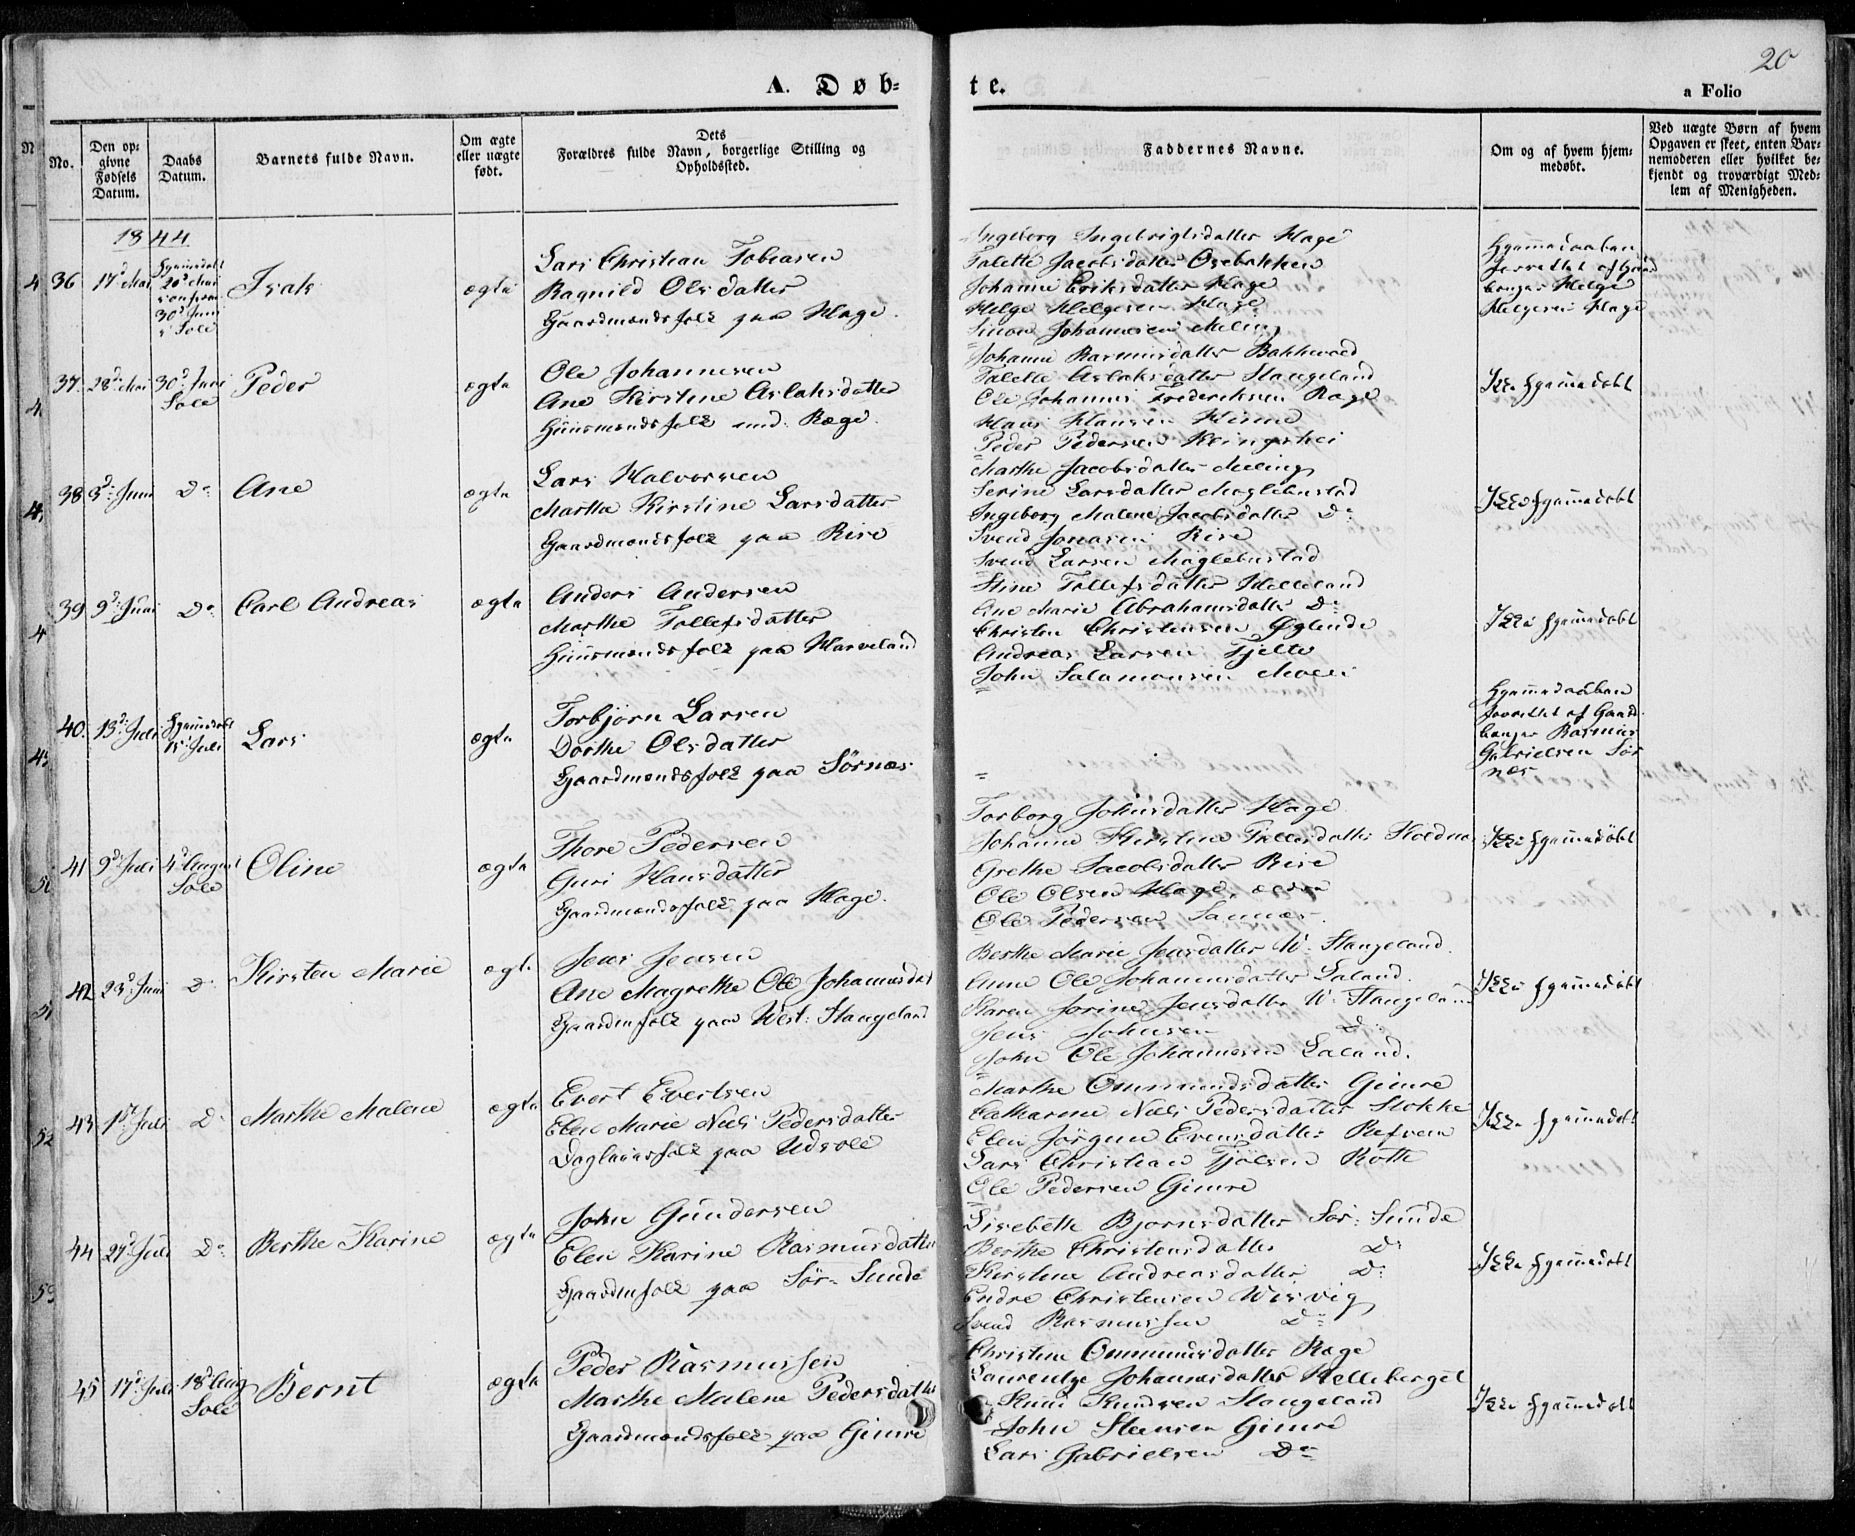 20
A. Døb-
te.
a Folio
No.
Den op-
givne
Fødsels
Datum.
Daabs
Datum.
Barnets fulde Navn.
Om ægte
eller uægte
født.
Dets
Forældres fulde Navn, borgerlige Stilling og
Opholdssted.
Faddernes Navne.
Om og af hvem hjem-
medøbt.
Ved uægte Børn af hvem
Opgaven er skeet, enten Bar-
nemoderen eller hvilket be-
kjendt og troværdigt Med-
lem af Menigheden.
1844.
36 17d Mai
Hjemmedøbt
20d Mai
30d Juni
i Sole
Isak
ægte
Lars Christian Tobiasen
Ragnild Olsdatter
Gaardmandsfolk paa Hage.
Ingeborg Ingebrigtsdatter Hage
Talette Jacobsdatter Osebakken
Johanne Eriksdatter Hage
Helge Helgesen Hage
Simon Johannesen Meling
Hjemmedaaben
forrettet af Gaard
bruger Helge
Helgesen Hage
37. 28d Mai
30d Juni
Sole
Peder
ægte
Ole Johannesen
Ane Kirstine Aslaksdatter
Huusmandsfolk und. Ræge.
Johanne Rasmusdatter Bakkevold
Talette Aslaksdatter Stangeland
Ole Johannes Frederiksen Ræge
Hans Hansen
Peder Pedersen
Ikke hjemmedøbt
38 3d Juni
Do
Ane
ægte
Lars Halvorsen
Martha Kirstine Larsdatter
Gaardmandsfolk paa Rise
Marthe Jacobsdatter Meling
Serine Larsdatter Maglebustad
Ingeborg Malene Jacobsdatter Do
Svend Jonasen Rise
Svend Larsen Maglebustad
Ikke hjemmedøbt
39 9d Juni
Do
Carl Andreas
ægte
Anders Andersen
Marthe Tollefsdatter
Huusmandsfolk paa Harveland
Stine Tollefsdatter Helleland
Ane Marie Abrahamsdatter Do
Christen Christensen Øglende
Andreas Larsen Tjelte
John Salamonsen
Ikke hjemmedøbt
40. 13d Juli
Hjemmedøbt
15d Juli
Lars
ægte
Torbjørn Larsen
Dorthe Olsdatter
Gaardmandsfolk paa Sørnæs
Hjemmedaaben
forrettet af Gaard
bruger Rasmus
Gabrielsen Sør
næs
41 9d Juli
4d August
Sole
Oline
ægte
Thore Pedersen
Guri Hansdatter
Gaardmandsfolk paa Hage.
Torborg Johnsdatter Hage
Johanne Kirstine
Grethe Jacobsdatter Rise
Ole Olsen Hage,
Ole Pedersen Sannæs.
Ikke hjemmedøbt
42 23d Juni
Do
Kirsten Marie
ægte
Jens Jensen
Ane Magrethe Ole Johannesdat
Gaardmfolk paa West: Stangeland
Berthe Marie Jensdatter W: Stangeland.
Anne Ole Johannesdatter Laland.
Karen Jorine Jensdatter W: Stangeland
Jens Johnsen Do
John Ole Johannesen Laland.
Ikke hjemmedøbt
43 15d Juli
Do
Marthe Malene
ægte
Evert Evertsen
Elen Marie Niels Pedersdatter
Dagleiersfolk paa Udsole
Marthe Ommundsdatter Gimre
Catharine Niels Pedersdatter Stokke
Elen Jørgine Evensdatter
Lars Christian Tjølsen Roth
Ole Pedersen Gimre
Ikke hjemmedøbt
44 27d Juli
Do
Berthe Karine
ægte
John Gundersen
Elen Karine Rasmusdatter
Gaardmfolk paa Sør- Sunde
Lisebeth Bjørnsdatter Sør: Sunde
Berthe Christensdatter Do
Kirstine Andreasdatter Do
Endre Christensen Wisvig
Svend Rasmussen Do
Ikke hjemmedøbt
45 17d Juli
18d Aug
Sole
Bernt
ægte
Peder Rasmussen
Marthe Malene Pedersdatter
Gaardmandsfolk paa Gimre
Christine Ommundsdatter Ræge
Laurentze Johannesdatter
Knud Knudsen Stangeland
John Steensen Gimre
Lars Gabrielsen Do
Ikke hjemmedøbt